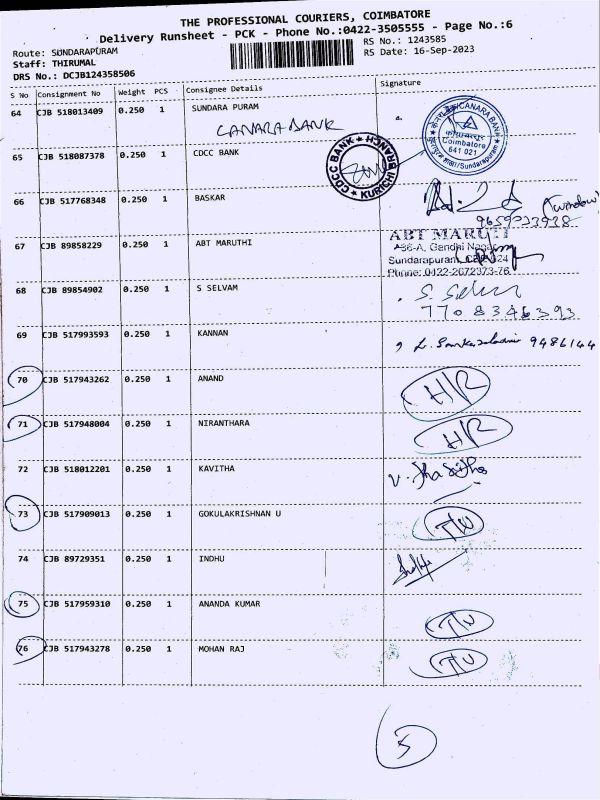 THE PROFESSIONAL COURIERS, COIMBATORE
Delivery Runsheet - PCK - Phone No.:0422-3505555 - Page No.:6
Route: SUNDARAPURAM
Staff: THIRUMAL
DRS No.: DCJB124358506
RS No.: 1243585
RS Date: 16-Sep-2023
S No Consignment No Weight PCS Consignee Details Signature
64 CJB 518013409 0.250 1 SUNDARA PURAM
CANARA BANK
CANARA BANK
Coimbatore
641 021
Sundarapuram
65 CJB 518087378 0.250 1 CDCC BANK
CDCC BANK BRANCH KURICHI
66 CJB 517768348 0.250 1 BASKAR
67 CJB 89858229 0.250 1 ABT MARUTHI
ABT MARUTI
-86-A, Gandhi Nagar,
Sundarapuram,
Phone: 0422-2672373-76
68 CJB 89854902 0.250 1 S SELVAM
S. Selvam
7708346393
69 CJB 517993593 0.250 1 KANNAN
9486144
70 CJB 517943262 0.250 1 ANAND
H/R
71 CJB 517948004 0.250 1 NIRANTHARA
H/R
72 CJB 518012201 0.250 1 KAVITHA
73 CJB 517909013 0.250 1 GOKULAKRISHNAN U
T/W
74 CJB 89729351 0.250 1 INDHU
75 CJB 517959310 0.250 1 ANANDA KUMAR
T/W
76 CJB 517943278 0.250 1 MOHAN RAJ
T/W
5